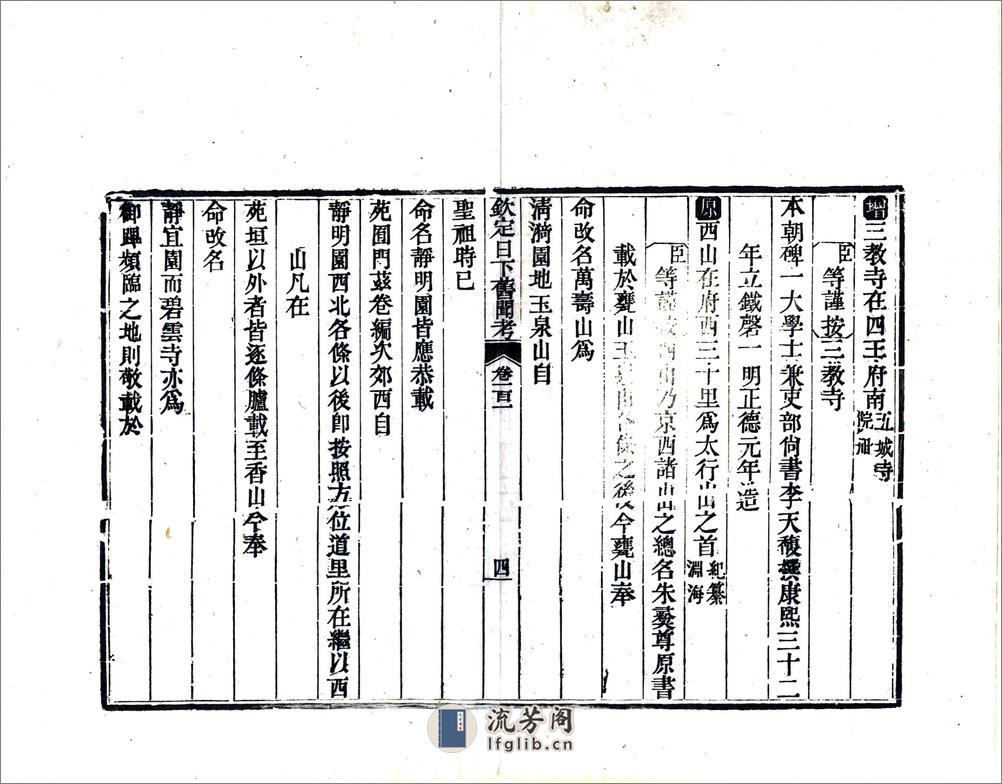 增三教寺在四王府南五城寺
院冊
臣等謹按三教寺
本朝碑一大學士兼吏部尙書李天馥撰康熙三十二
年立鐵磬一明正德元年造
原西山在府西三十里爲太行山之首紀纂
淵海
臣等謹按西山乃京西諸山之總名朱彝尊原書
載於甕山玉泉山各條之後今甕山奉
命改名萬壽山爲
淸漪園地玉泉山自
欽定日下舊聞考 卷一百一 四
聖祖時已
命名靜明園皆應恭載
苑囿門茲卷編次郊西自
靜明園西北各條以後卽按照方位道里所在繼以西
山凡在
苑垣以外者皆逐條臚載至香山今奉
命改名
靜宜園而碧雲寺亦爲
御蹕頻臨之地則敬載於
流芳阁
lfglib.cn